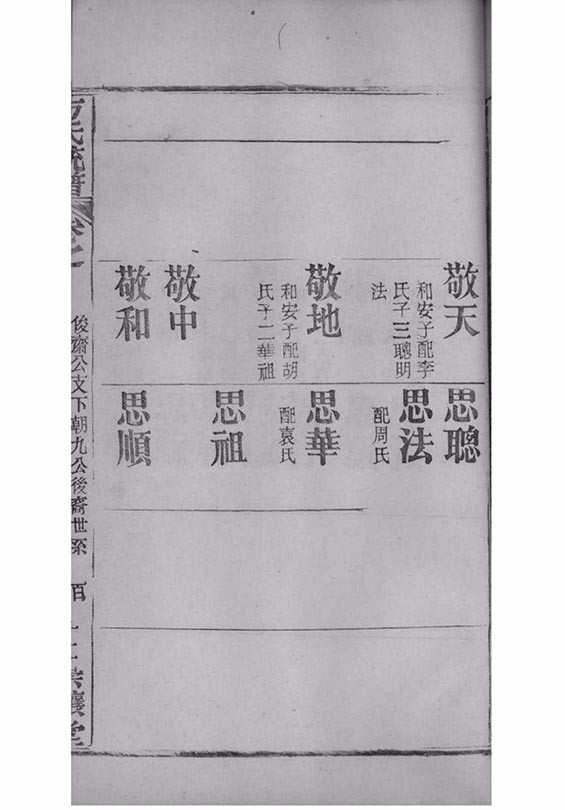 敬天
和安子配李
氏子三聰明
法
敬地
和安子配胡
氏子二華祖
敬中
敬和
思聰
思法
配周氏
思華
配袁氏
思祖
思順
氏統譜
卷之
俊齋公支下朝九公後裔世系
百